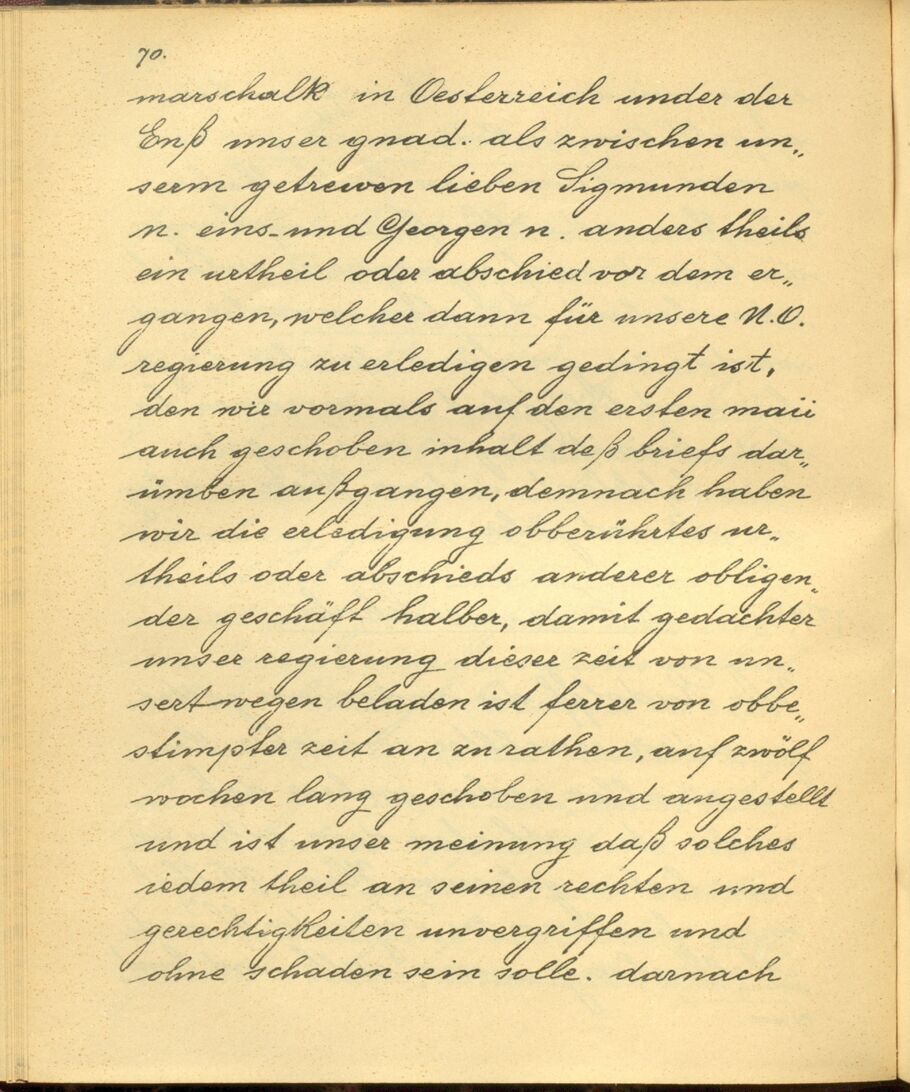 70.
marschalk in Oesterreich under der
Enß unser gnad. als zwischen un„
serm getrewen lieben Sigmunden
n. eins- und Georgen n. anders theils
ein urtheil oder abschied vor dem er„
gangen, welcher dann für unsere N.O.
regierung zu erledigen gedingt ist,
den wir vormals auf den ersten maii
auch geschoben inhalt deß briefs dar„
ümben außgangen, demnach haben
wir die erledigung obberührtes ur„
theils oder abschieds anderer obligen„
der geschäft halber, damit gedachter
unser regierung dieser zeit von un„
sertwegen beladen ist ferrer von obbe„
stimpter zeit an zu rathen, auf zwölf
wochen lang geschoben und angestellt
und ist unser meinung daß solches
iedem theil an seinen rechten und
gerechtigkeiten unvergriffen und
ohne schaden sein solle. darnach